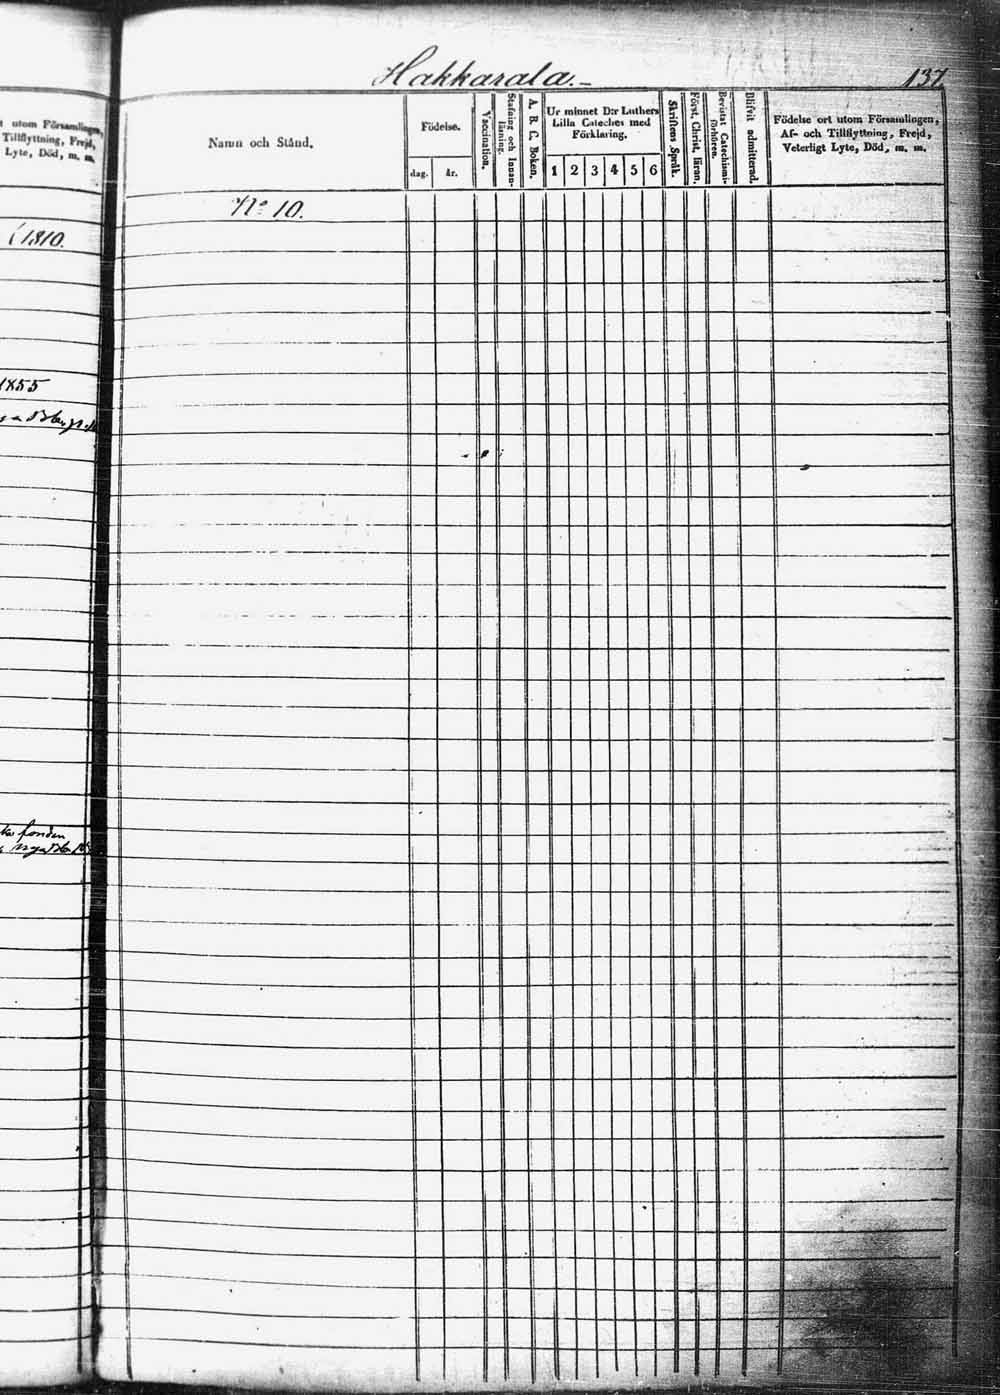 t utom Församlingen,
Tillflyttning, Frejd,
Lyte, Död, m. m.
(1810.
1855
fonden
Hakkarala.–
137
Namn och Stånd.
Födelse.
dag.
år.
Vaccination.
Stafning och Innan-
läsning.
A. B. C. Boken.
Ur minnet D:r Luthers
Lilla Cateches med
Förklaring.
1 2 3 4 5 6
Skriftens Språk.
Först. Christ. läran.
Bevistat Catechismi-
förhören.
Blifvit admitterad.
Födelse ort utom Församlingen,
Af- och Tillflyttning, Frejd,
Veterligt Lyte, Död, m. m.
No 10.